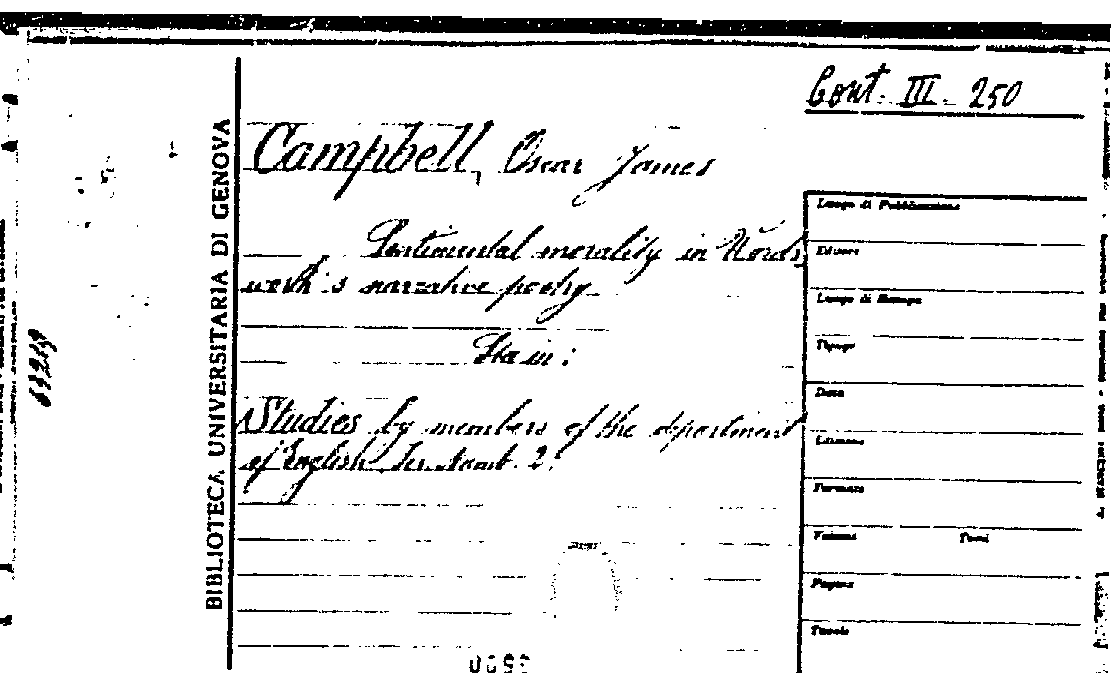 Cont. III. 250
Campbell, Oscar James
Sentimental morality in Words
worth's narrative poetry
Sta in:
Studies by members of the department
of English. Ser. Numb. 2.
BIBLIOTECA UNIVERSITARIA DI GENOVA
Luogo di Pubblicazione
Editore
Luogo di Stampa
Tipogr.
Data
Edizione
Formato
Volume Tomi
Pagine
Tavole